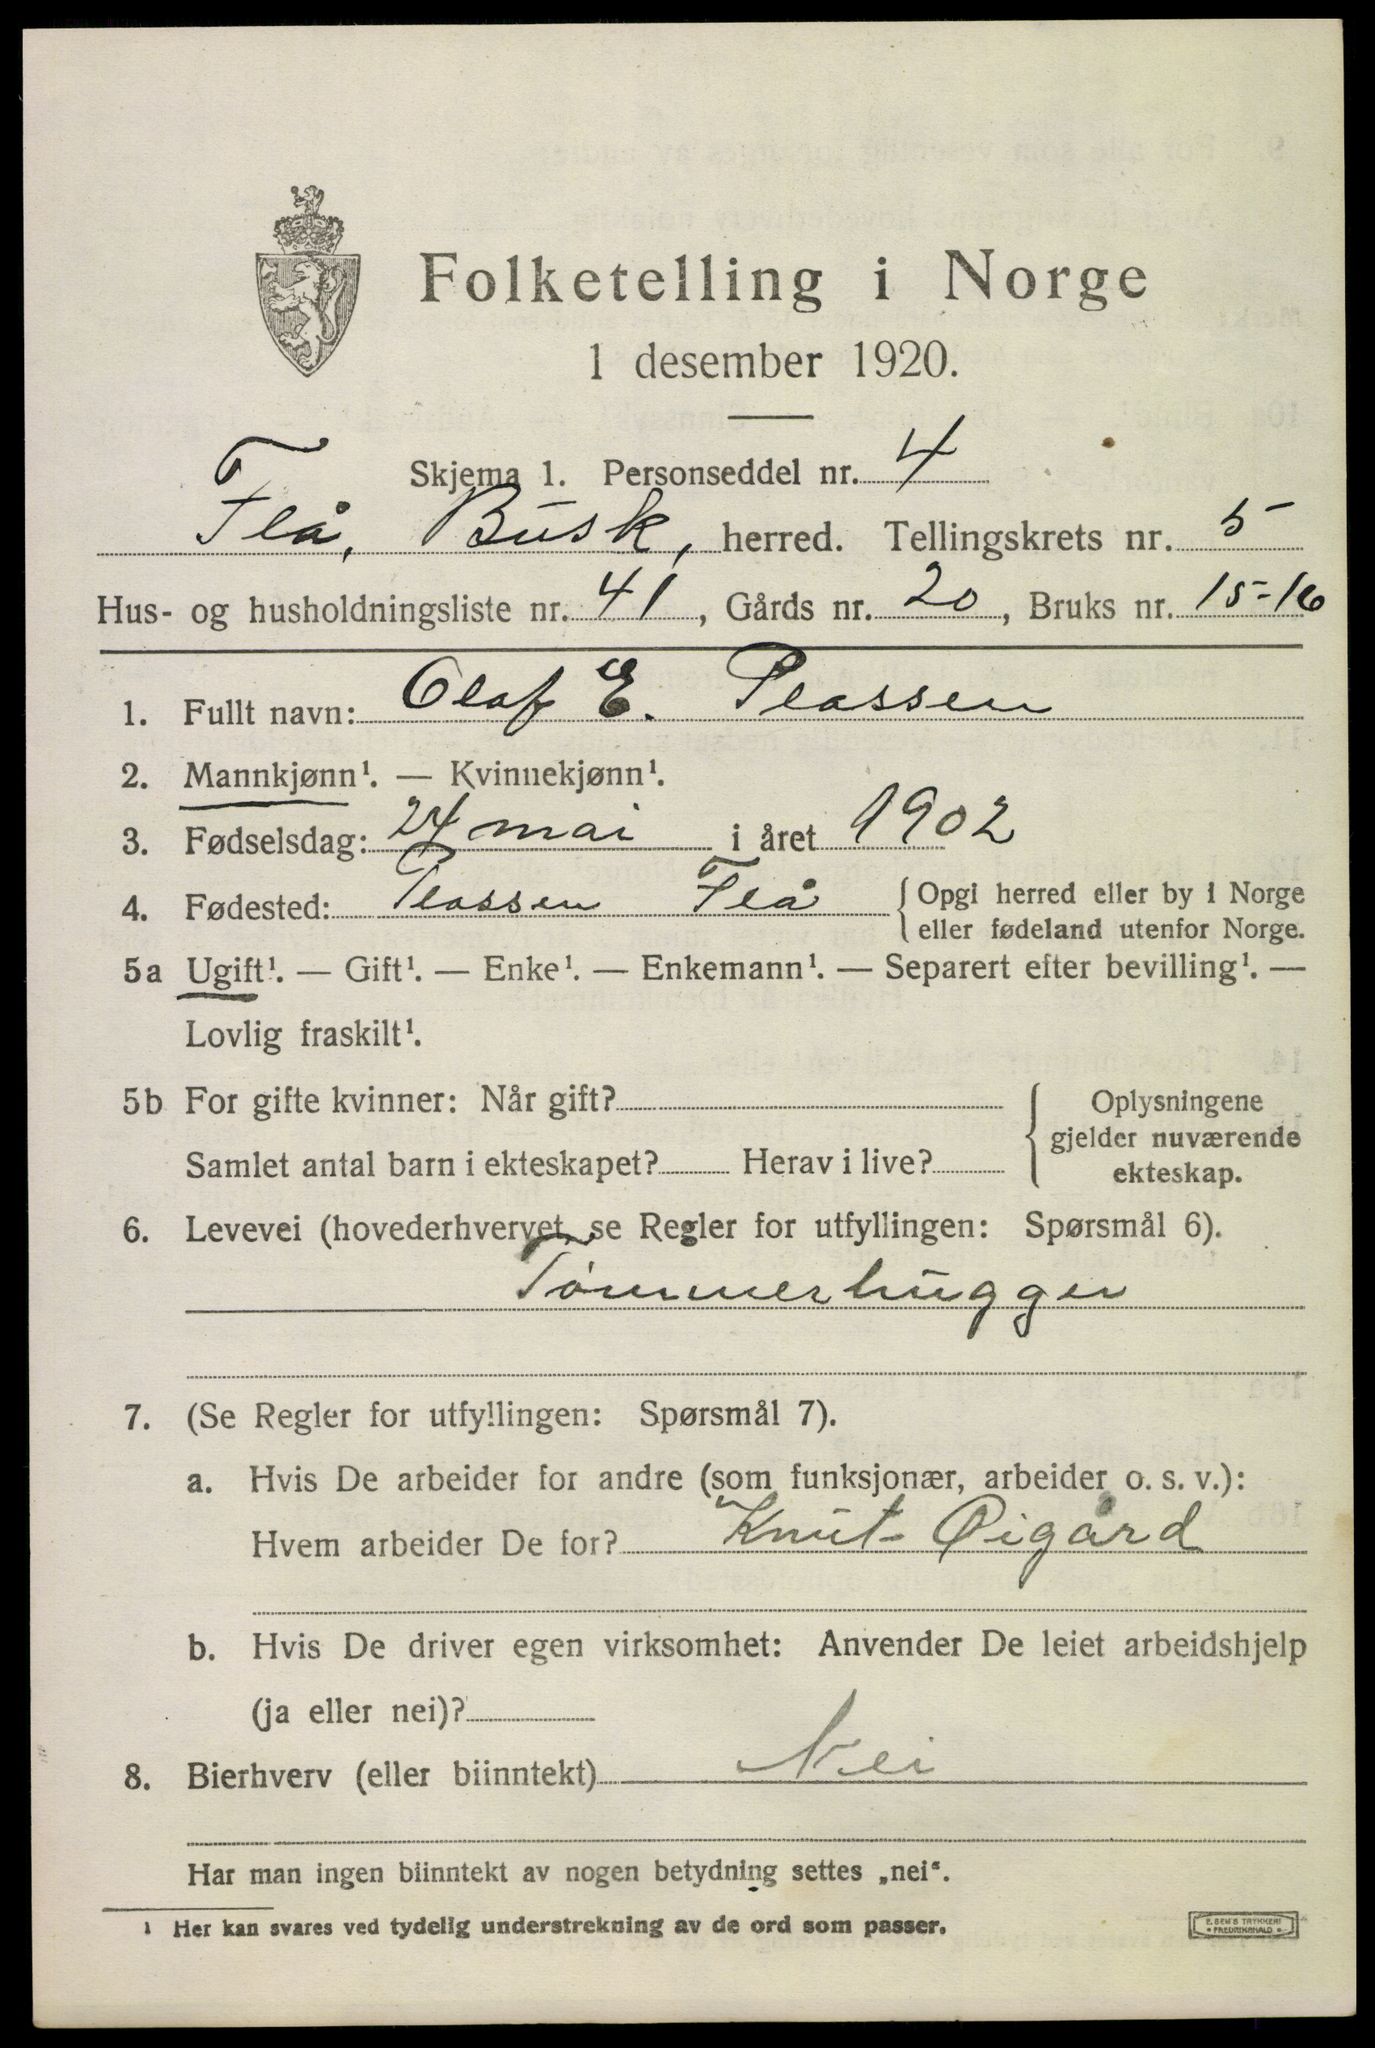 Folketelling i Norge
1 desember 1920.
Skjema 1. Personseddel nr. 4
Flå, Busk, herred. Tellingskrets nr. 5
Hus- og husholdningsliste nr. 41, Gårds nr. 20, Bruks nr. 15-16
1. Fullt navn: Olaf E. Plassen
2. Mannkjønn¹. — Kvinnekjønn¹.
3. Fødselsdag: 24 mai i året 1902
4. Fødested: Plassen Flå { Opgi herred eller by i Norge
eller fødeland utenfor Norge.
5a Ugift¹. — Gift¹. — Enke¹. — Enkemann¹. — Separert efter bevilling¹. —
Lovlig fraskilt¹.
5b For gifte kvinner: Når gift? { Oplysningene
gjelder nuværende
Samlet antal barn i ekteskapet? Herav i live?
ekteskap.
6. Levevei (hovederhvervet, se Regler for utfyllingen: Spørsmål 6).
Tømmerhugger
7. (Se Regler for utfyllingen: Spørsmål 7).
a. Hvis De arbeider for andre (som funksjonær, arbeider o. s. v.):
Hvem arbeider De for? Knut Øigård
b. Hvis De driver egen virksomhet: Anvender De leiet arbeidshjelp
(ja eller nei)?
8. Bierhverv (eller biinntekt) Nei
Har man ingen biinntekt av nogen betydning settes „nei“.
¹ Her kan svares ved tydelig understrekning av de ord som passer.
E. SEM'S TRYKKERI
FREDRIKSHALD